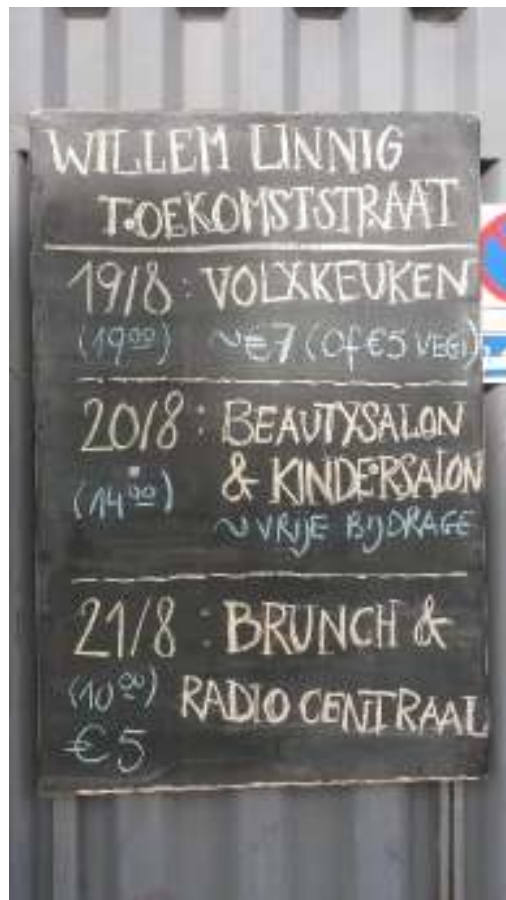 WILLEM LINNIG
TOEKOMSTSTRAAT
19/8 : VOLXKEUKEN
(19⁰⁰) ~€7 (Of €5 VEGI)
20/8 : BEAUTYSALON
& KINDERSALON
(14⁰⁰)
~ VRIJE BIJDRAGE
21/8 : BRUNCH &
(10⁰⁰) RADIO CENTRAAL
€5